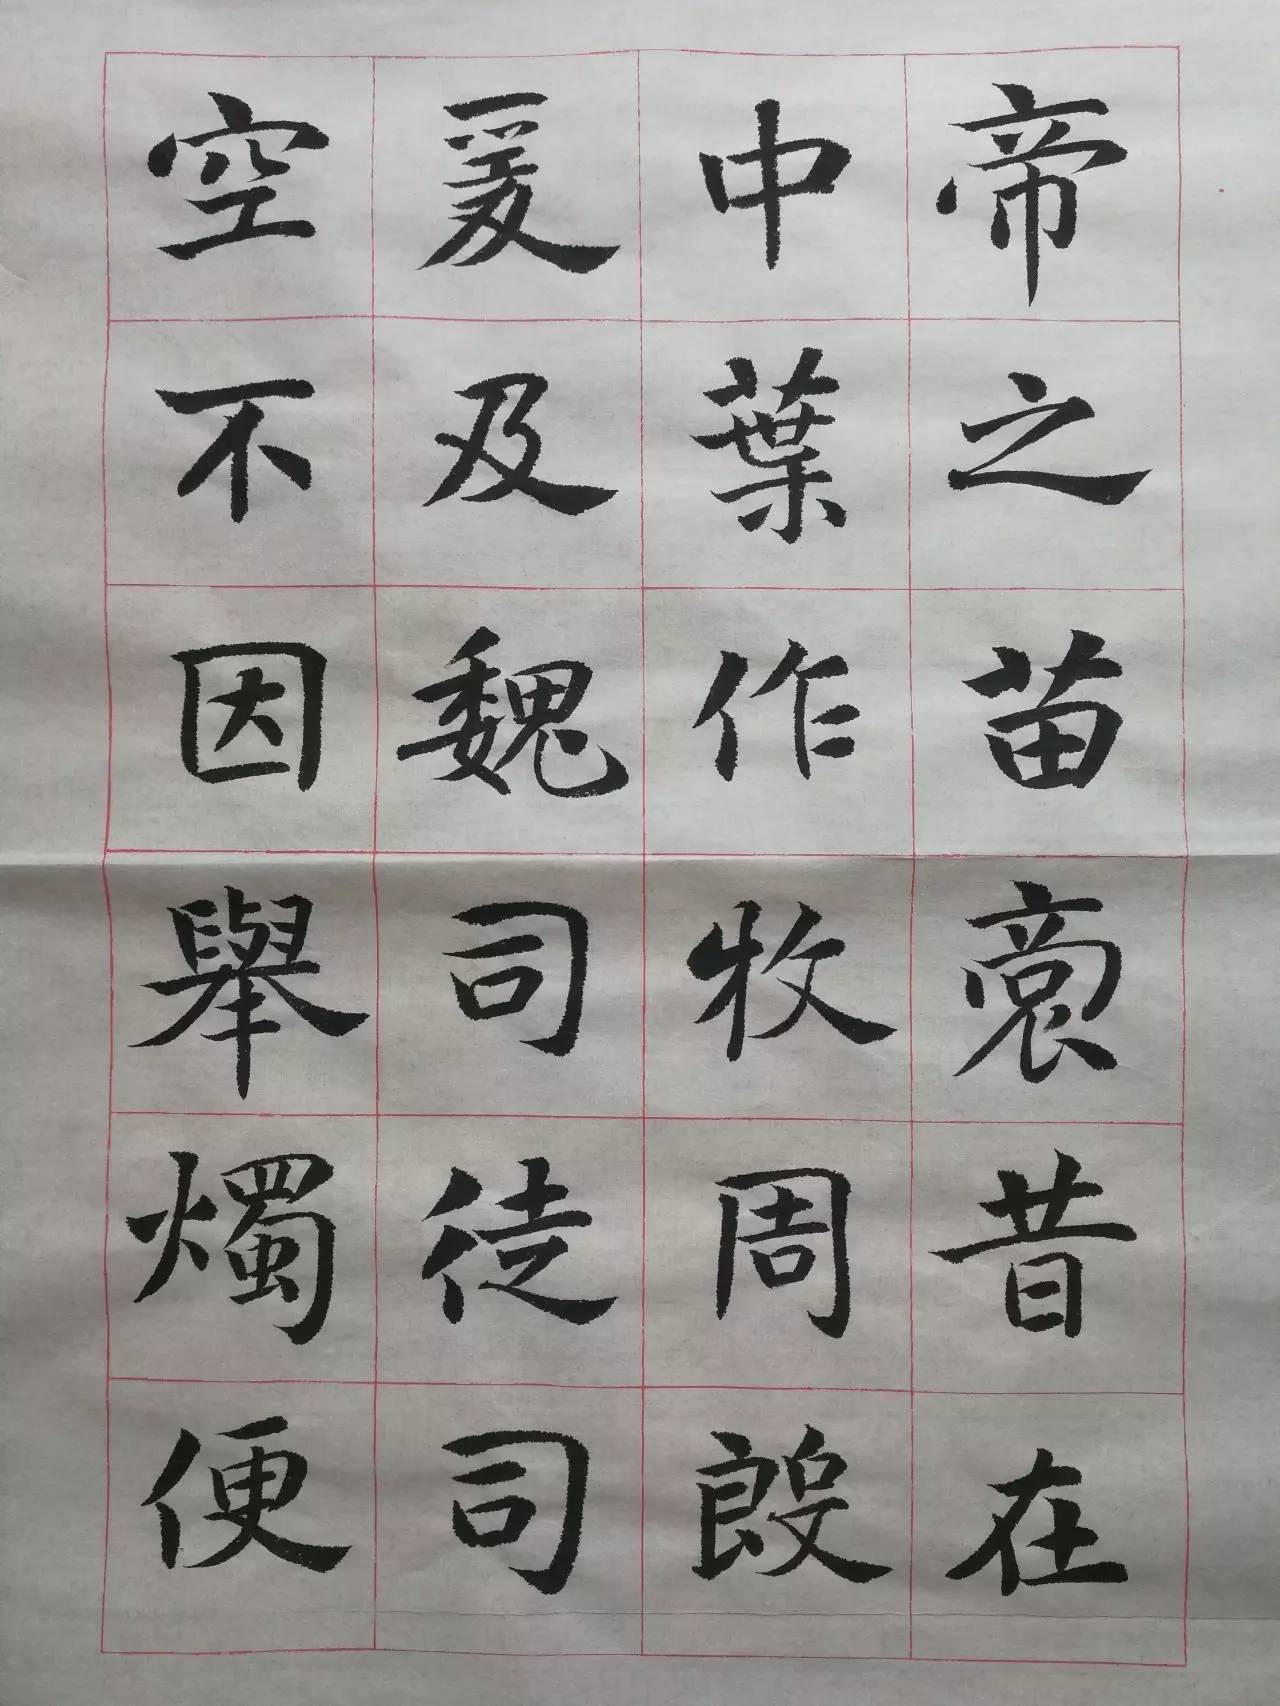 帝之苗裔昔在
中葉作牧周殷
爰及魏司徒司
空不因舉燭便